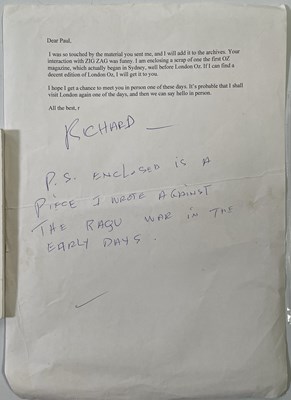 Dear Paul,
I was so touched by the material you sent me, and I will add it to the archives. Your
interaction with ZIG ZAG was funny. I am enclosing a scrap of one the first OZ
magazine, which actually begin in Sydney, well before London Oz. If I can find a
decent edition of London Oz, I will get it to you.
I hope I get a chance to meet you in person one of these days. It's probable that I shall
visit London again one of the days, and then we can say hello in person.
All the best, r
RICHARD —
P.S. ENCLOSED IS A
PIECE I WROTE AGAINST
THE RAQU WAR IN THE
EARLY DAYS.